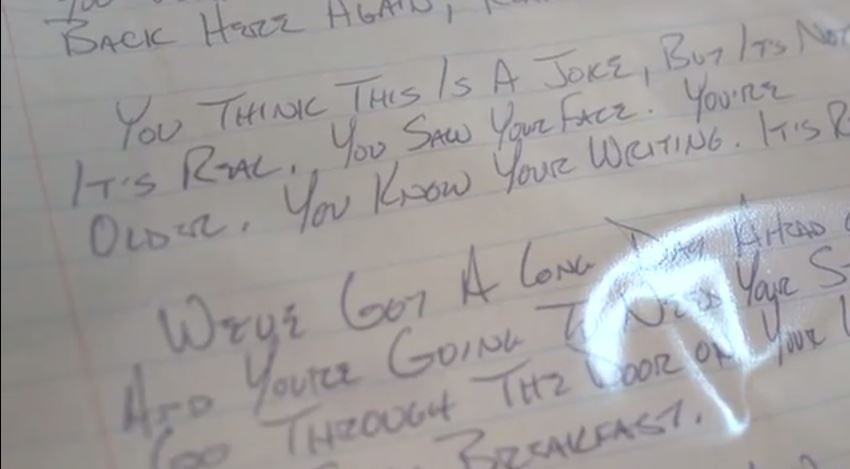 Back Here Again,
You Think This Is A Joke, But Its
It's Real. You Saw Your Face. You're
Older. You Know Your Writing. It's
We've Got A Long Day Ahead
And You're Going To Need Your
Go Through The Door on Your
Breakfast.